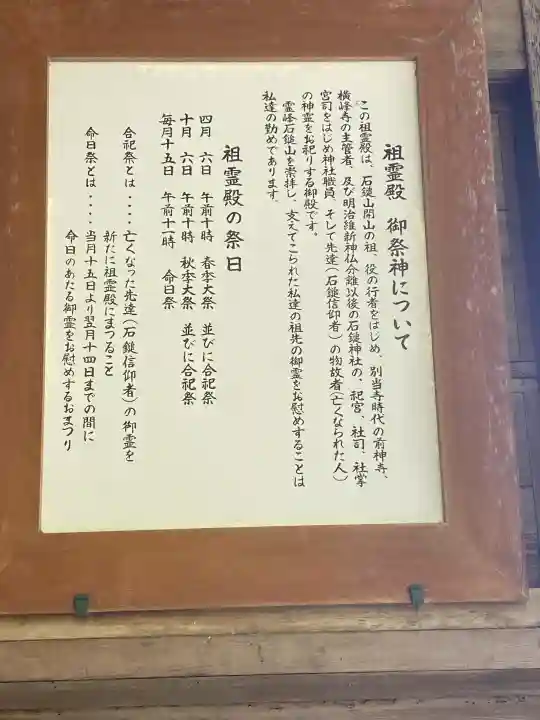 祖霊殿 御祭神について
この祖霊殿は、石鎚山開山の祖、役の行者をはじめ、別当寺時代の前神寺、
横峰寺の主管者、及び明治維新神仏分離以後の石鎚神社の、祀官、社司、社掌
宮司をはじめ神社職員、そして先達(石鎚信仰者)の物故者(亡くなられた人)
の神霊をお祀りする御殿です。
霊峰石鎚山を崇拝し、支えてこられた私達の祖先の御霊をお慰めすることは
私達の勤めであります。
祖霊殿の祭日
四月 六日 午前十時 春季大祭 並びに合祀祭
十月 六日 午前十時 秋季大祭 並びに合祀祭
毎月十五日 午前十一時 命日祭
合祀祭とは・・・・亡くなった先達(石鎚信仰者)の御霊を
新たに祖霊殿にまつること
命日祭とは・・・・当月十五日より翌月十四日までの間に
命日のあたる御霊をお慰めするおまつり